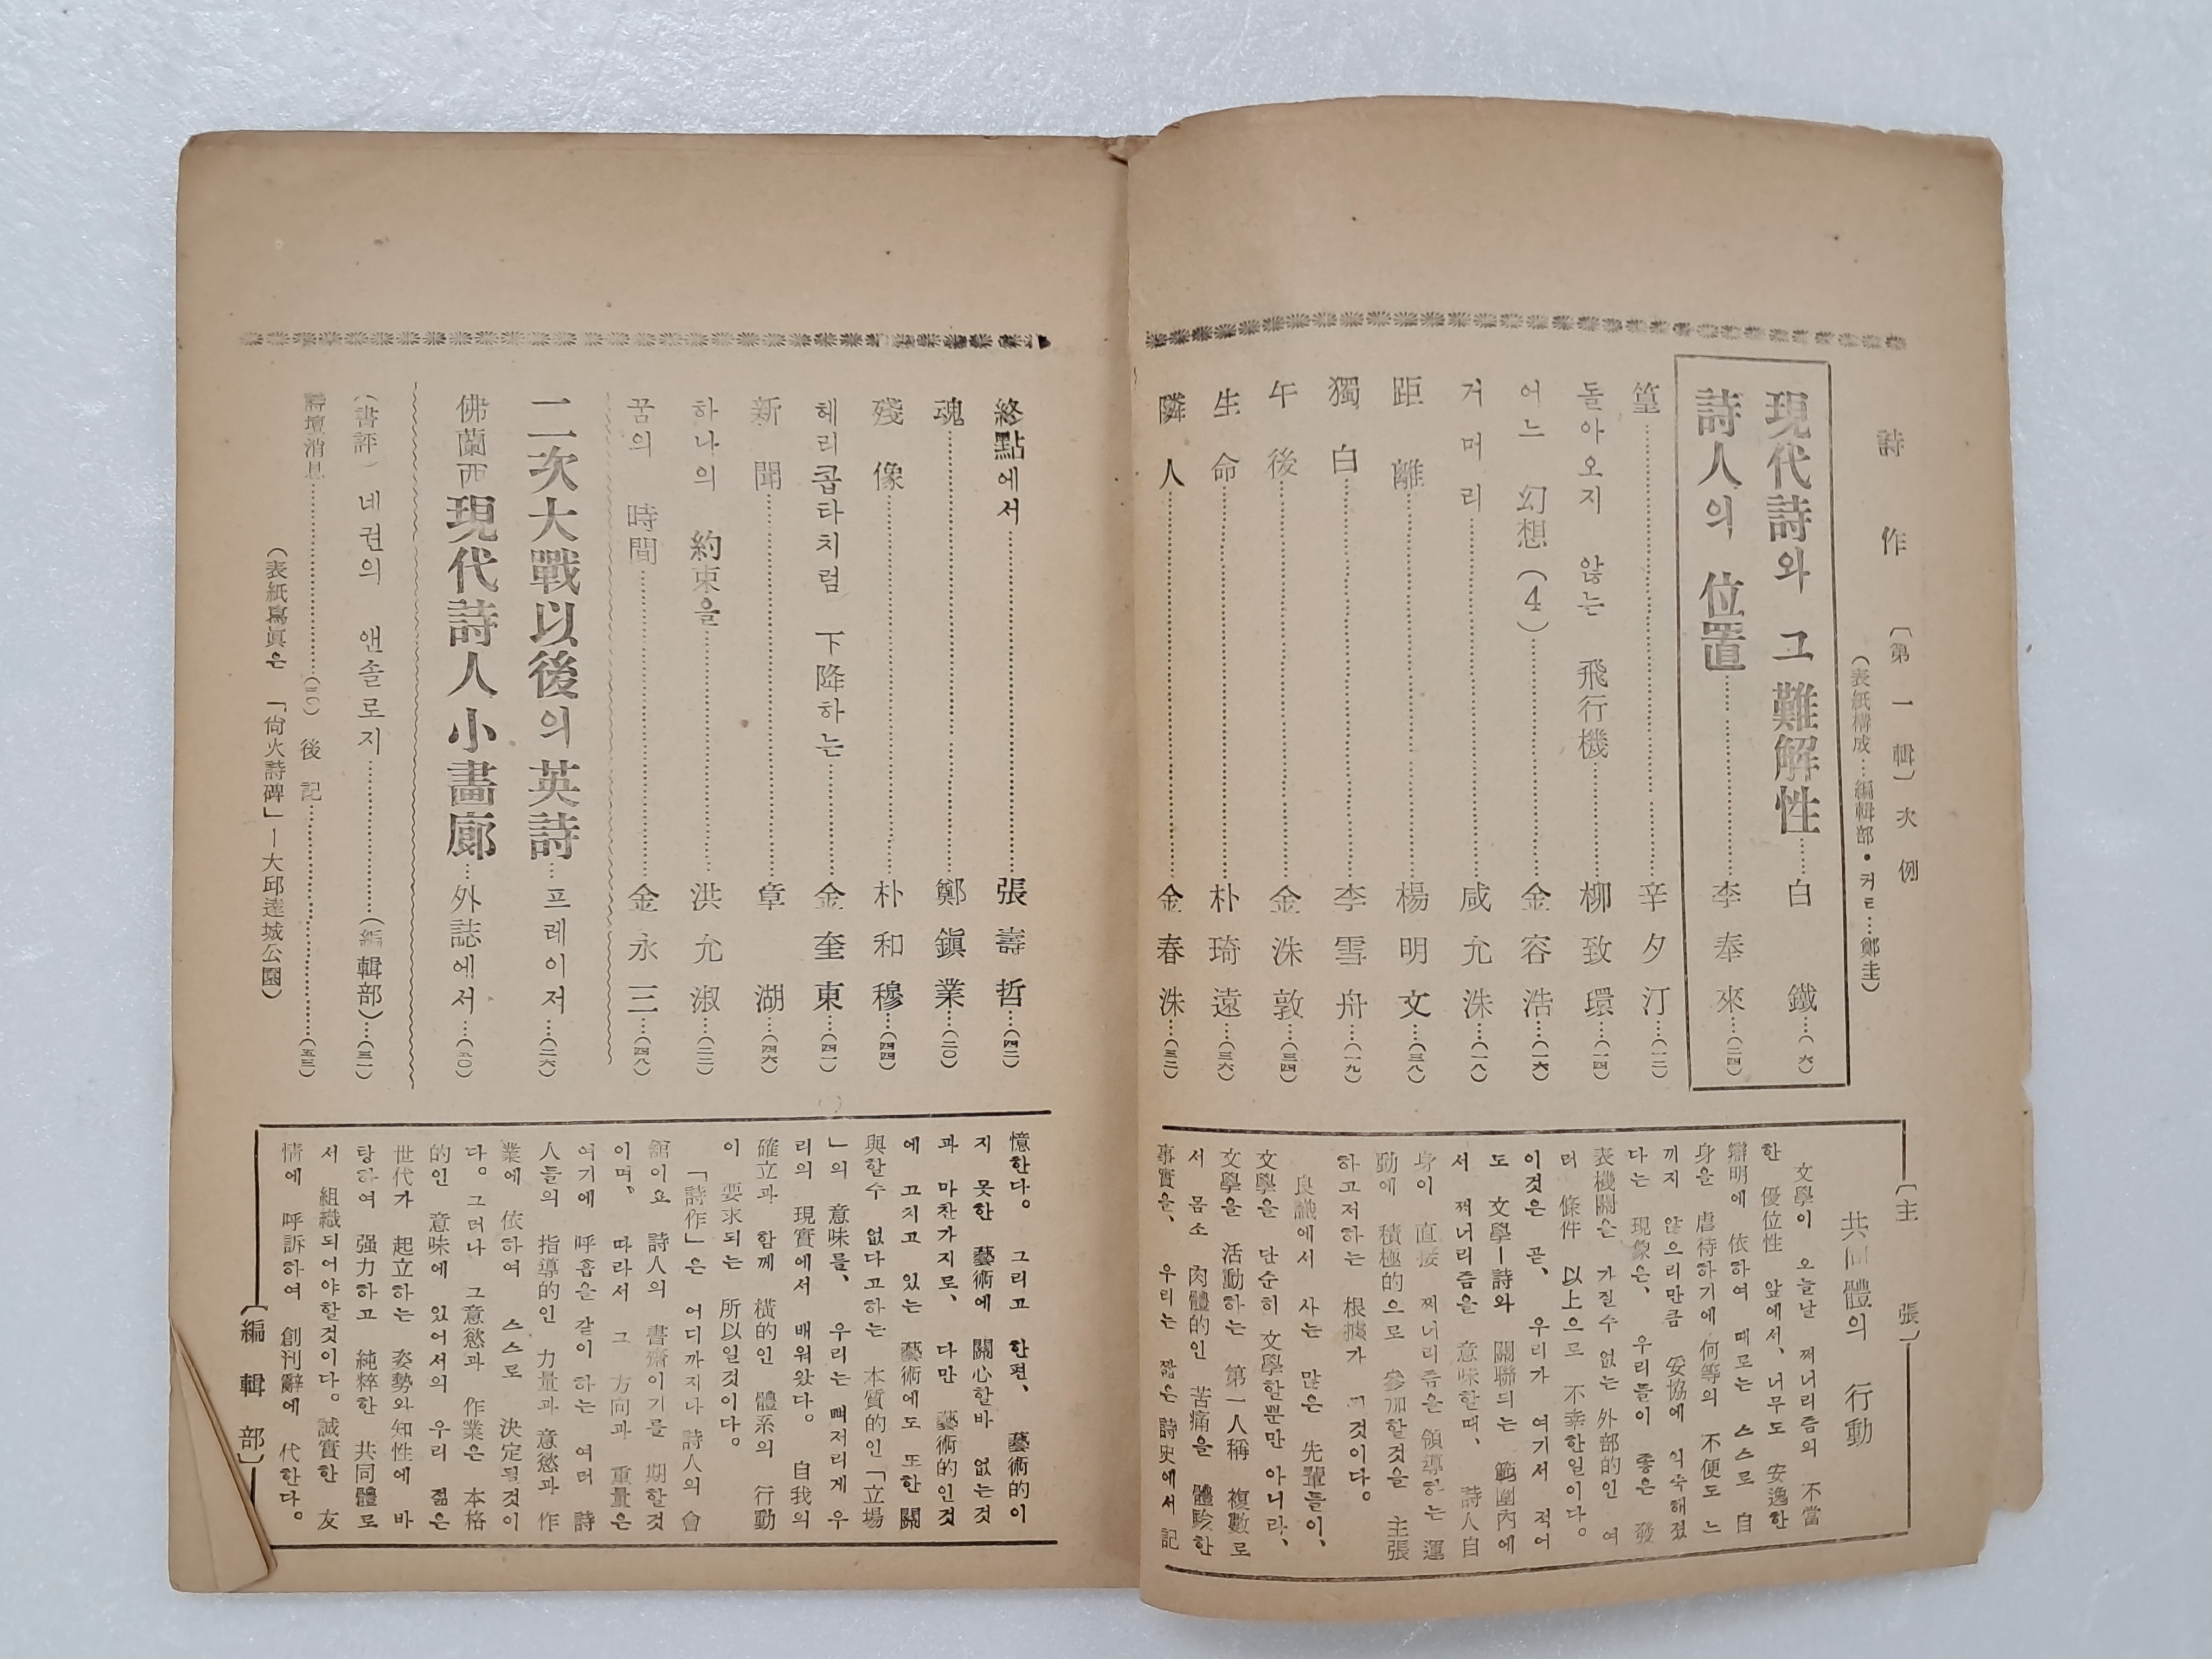 詩作 〔第一輯〕 次例
(表紙構成…編輯部・커ㅌ…鄭圭)
現代詩와 그 難解性……白鐵…(六)
詩人의 位置……李奉來…(二四)
篁……辛夕汀…(一二)
돌아오지 않는 飛行機……柳致環…(一四)
어느 幻想(4)……金容浩…(一六)
거머리……咸允洙…(一八)
距離……楊明文…(三八)
獨白……李雪舟…(一九)
午後……金洙敦…(三四)
生命……朴琦遠…(三六)
隣人……金春洙…(三二)
終點에서……張壽哲…(四二)
魂……鄭鎭業…(二〇)
殘像……朴和穆…(四四)
헤리콥타치럼 下降하는……金奎東…(四一)
新聞……章湖…(四六)
하나의 約束을……洪允淑…(二二)
꿈의 時間……金永三…(四八)
二次大戰以後의 英詩…프레이저…(二六)
佛蘭西現代詩人小畵廊…外誌에서…(五〇)
(書評) 네권의 앤솔로지……(編輯部)…(三一)
詩壇消息……(三〇) 後記……(五三)
(表紙寫眞은 「尙火詩碑」—大邱達城公園)
〔主張〕
共同體의 行動
文學이 오늘날 쩌너리즘의 不當
한 優位性 앞에서、너무도 安逸한
辯明에 依하여 때로는 스스로 自
身을 虐待하기에 何等의 不便도 느
끼지 않으리만큼 妥協에 익숙해졌
다는 現象은、우리들이 좋은 發
表機關은 가질수 없는 外部的인 여
러 條件 以上으로 不幸한일이다。
이것은 곧、우리가 여기서 적어
도 文學—詩와 關聯되는 範圍內에
서 쩌너리즘을 意味할때、詩人自
身이 直接 쩌너리즘을 領導하는 運
動에 積極的으로 參加할것을 主張
하고저하는 根據가 될것이다。
良識에서 사는 많은 先輩들이、
文學을 단순히 文學할뿐만 아니라、
文學을 活動하는 第一人稱 複數로
서 몸소 肉體的인 苦痛을 體驗한
事實을、우리는 짧은 詩史에서 記
憶한다。그리고 한편、藝術的이
지 못한 藝術에 關心할바 없는것
과 마찬가지로、다만 藝術的인것
에 고치고 있는 藝術에도 또한 關
與할수 없다고하는 本質的인「立場
」의 意味를、우리는 뼈저리게 우
리의 現實에서 배워왔다。自我의
確立과 함께 橫的인 體系의 行動
이 要求되는 所以일것이다。
「詩作」은 어디까지나 詩人의 會
舘이요 詩人의 書齋이기를 期할것
이며、따라서 그 方向과 重量은
여기에 呼흡을 같이 하는 여러 詩
人들의 指導的인 力量과 意慾과 作
業에 依하여 스스로 決定될것이
다。그러나 그意慾과 作業은 本格
的인 意味에 있어서의 우리 젊은
世代가 起立하는 姿勢와知性에 바
탕하여 强力하고 純粹한 共同體로
서 組織되어야할것이다。誠實한 友
情에 呼訴하여 創刊辭에 代한다。
〔編輯部〕